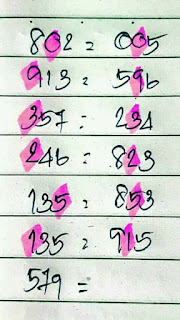 802 = 005
913 = 596
357 = 234
246 = 823
135 = 853
135 = 915
579 =